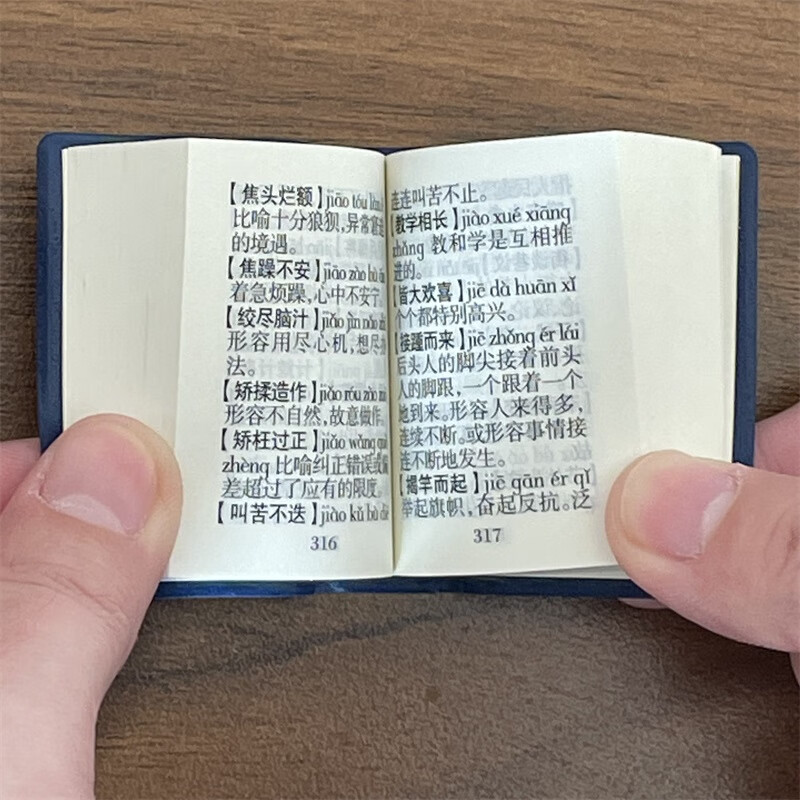 【焦头烂额】jiāo tóu làn
比喻十分狼狈,异常窘迫
的境遇。
【焦躁不安】jiāo zào bù ān
着急烦躁,心中不安宁。
【绞尽脑汁】jiǎo jìn nǎo zhī
形容用尽心机,想尽办
法。
【矫揉造作】jiǎo róu zào zuò
形容不自然,故意做作。
【矫枉过正】jiǎo wǎng guò
zhèng 比喻纠正错误或偏
差超过了应有的限度。
【叫苦不迭】jiào kǔ bù dié
316
连连叫苦不止。
【教学相长】jiào xué xiāng
zhǎng 教和学是互相推
进的。
【皆大欢喜】jiē dà huān xǐ
个个都特别高兴。
【接踵而来】jiē zhǒng ér lái
后头人的脚尖接着前头
人的脚跟,一个跟着一个
地到来。形容人来得多,
连续不断。或形容事情接
连不断地发生。
【揭竿而起】jiē gān ér qǐ
举起旗帜,奋起反抗。泛
317